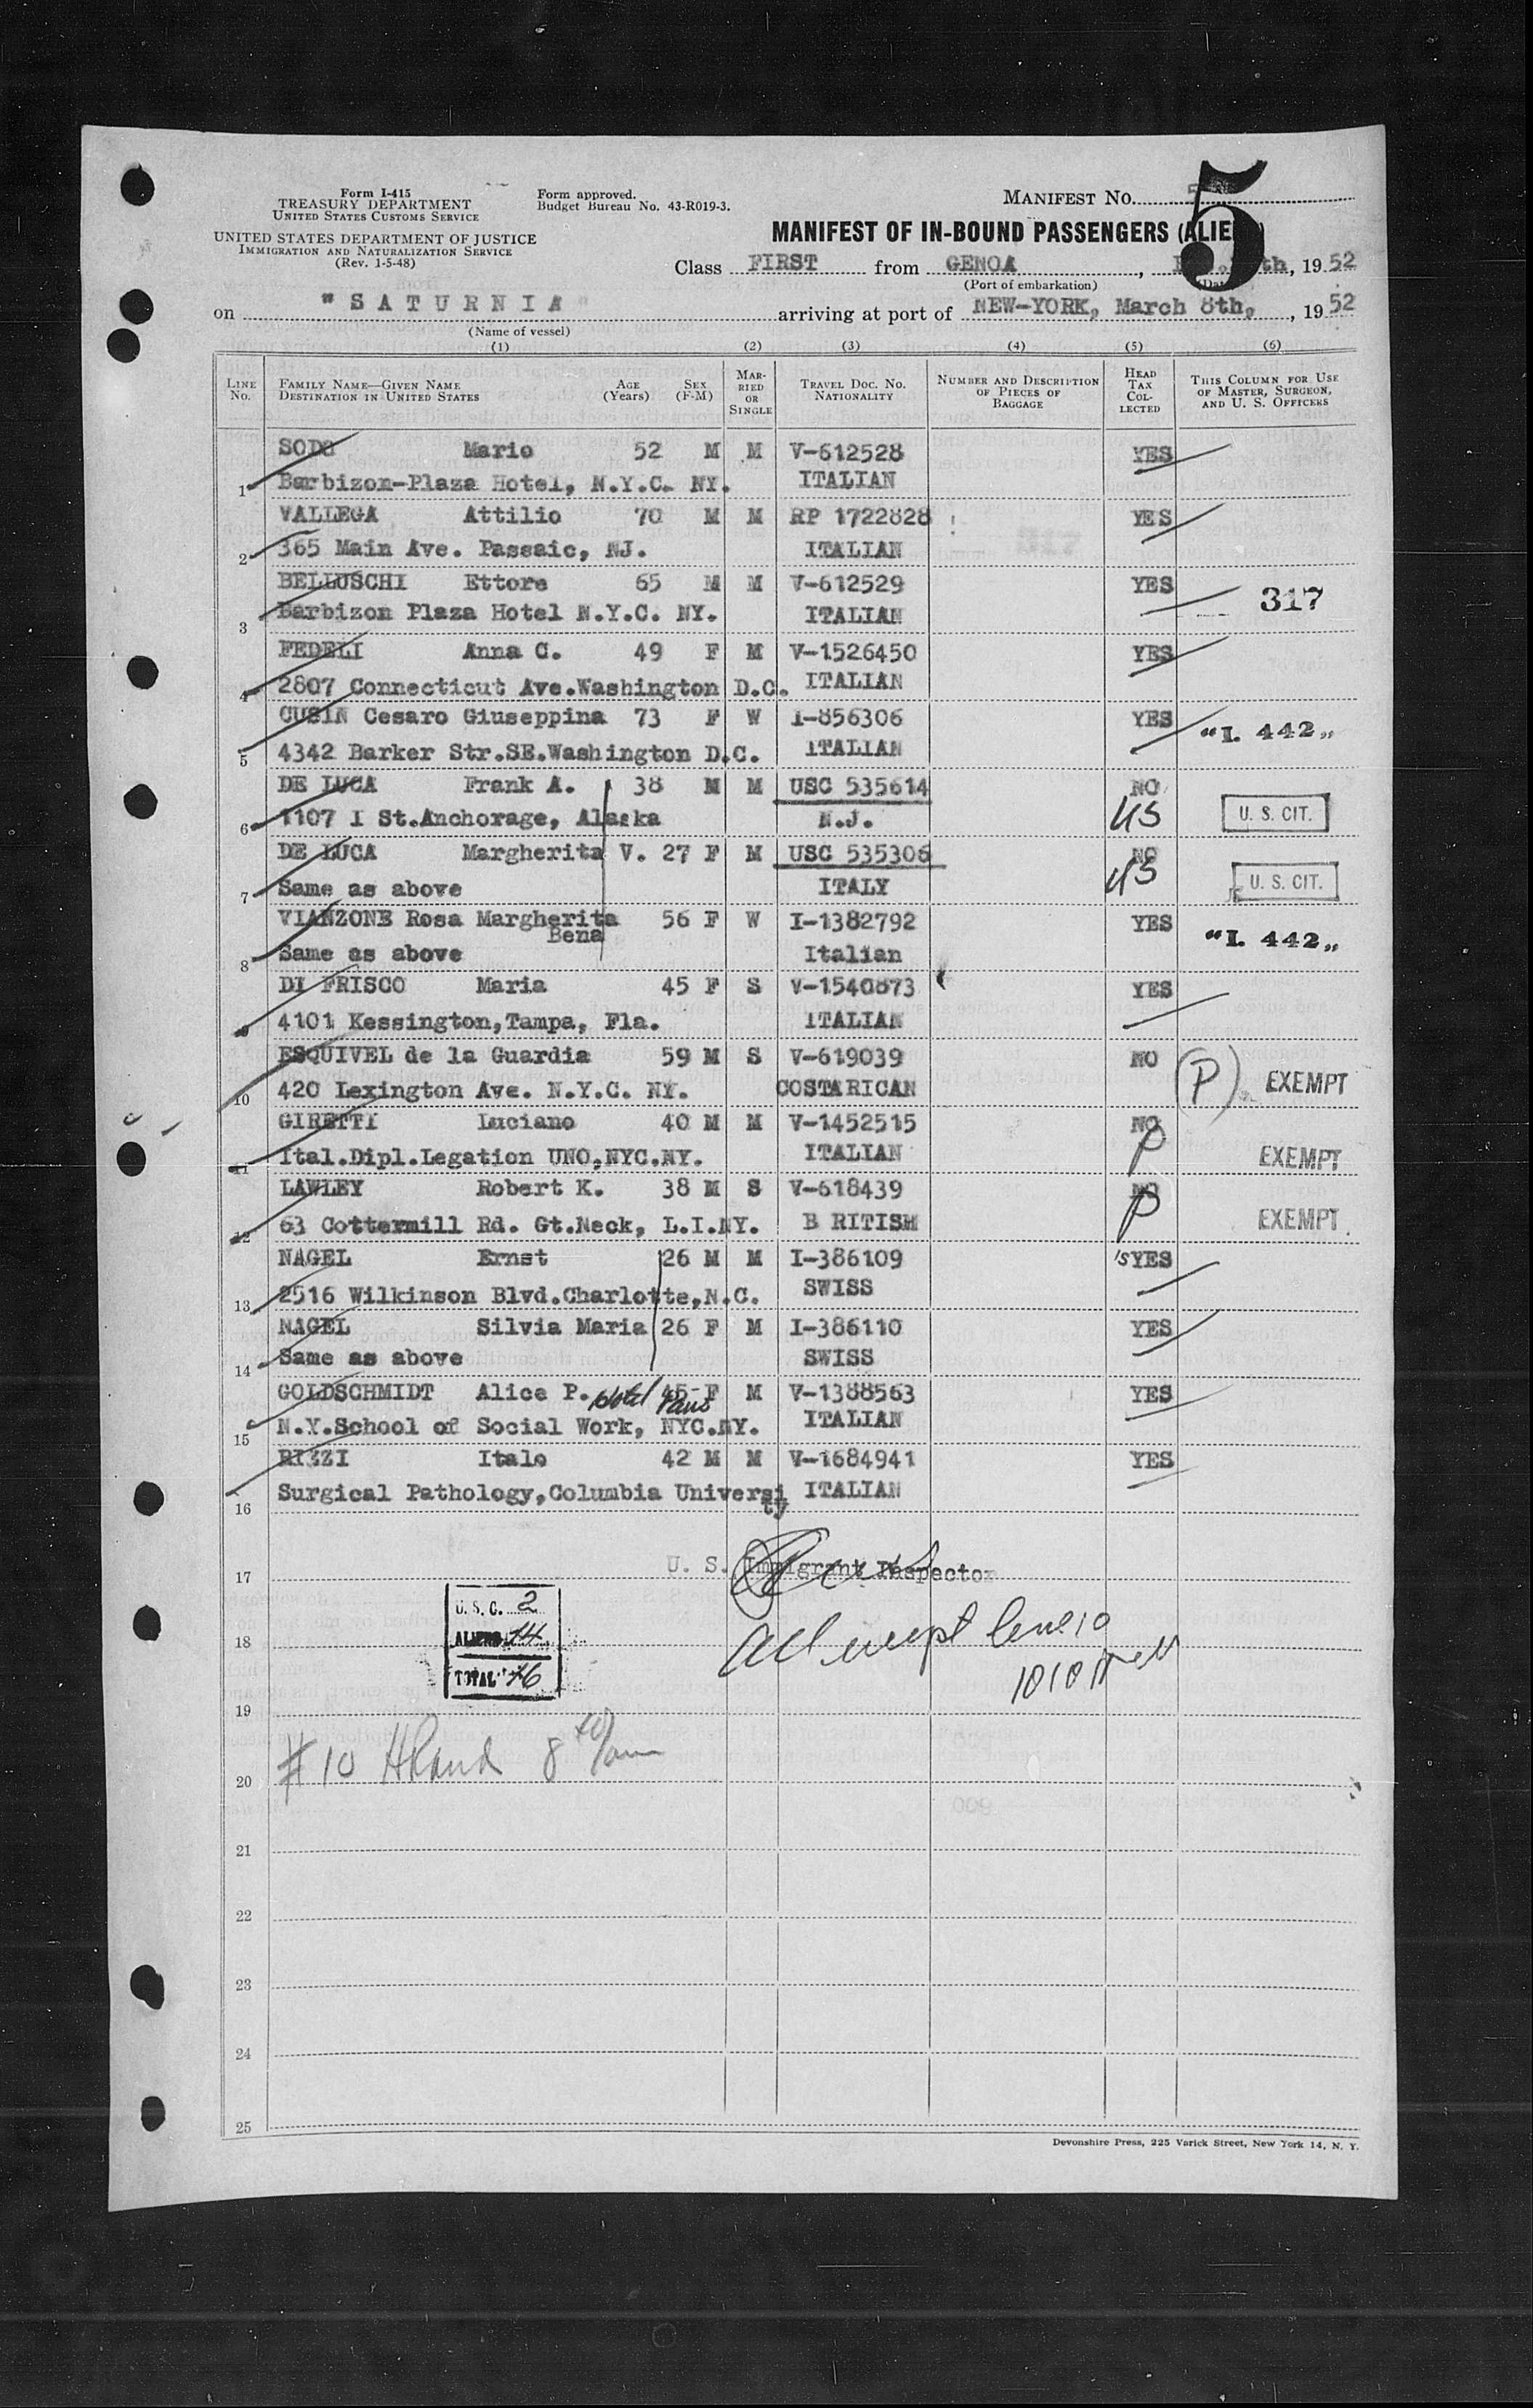 Form I-415
TREASURY DEPARTMENT
UNITED STATES CUSTOMS SERVICE
UNITED STATES DEPARTMENT OF JUSTICE
IMMIGRATION AND NATURALIZATION SERVICE
(Rev. 1-5-48)
Form approved.
Budget Bureau No. 43-R019-3.
MANIFEST No.
5
MANIFEST OF IN-BOUND PASSENGERS (ALIE
Class FIRST from GENOA , th, 19 52
(Port of embarkation)
on "SATURNIA" arriving at port of NEW-YORK, March 8th, , 19 52
(Name of vessel)
(1) (2) (3) (4) (5) (6)
LINE No.
FAMILY NAME—GIVEN NAME
DESTINATION IN UNITED STATES
AGE (Years)
SEX (F-M)
MARRIED OR SINGLE
TRAVEL DOC. NO. NATIONALITY
NUMBER AND DESCRIPTION OF PIECES OF BAGGAGE
HEAD TAX COLLECTED
THIS COLUMN FOR USE OF MASTER, SURGEON, AND U. S. OFFICERS
SODO Mario 52 M M V-612528 YES
1 Barbizon-Plaza Hotel, N.Y.C. NY. ITALIAN
VALLEGA Attilio 70 M M RP 1722828 YES
2 365 Main Ave. Passaic, NJ. ITALIAN
BELLUSCHI Ettore 65 M M V-612529 YES
3 Barbizon Plaza Hotel N.Y.C. NY. ITALIAN 317
FEDELI Anna C. 49 F M V-1526450 YES
4 2807 Connecticut Ave.Washington D.C. ITALIAN
CUSIN Cesaro Giuseppina 73 F W I-856306 YES
5 4342 Barker Str.SE.Washington D.C. ITALIAN "I. 442"
DE LUCA Frank A. 38 M M USC 535614 NO
6 1107 I St.Anchorage, Alaska N.J. US U. S. CIT.
DE LUCA Margherita V. 27 F M USC 535306 NO
7 Same as above ITALY US U. S. CIT.
VIANZONE Rosa Margherita 56 F W I-1382792 YES
Bena
8 Same as above Italian "I. 442"
DI FRISCO Maria 45 F S V-1540873 YES
9 4101 Kessington,Tampa, Fla. ITALIAN
ESQUIVEL de la Guardia 59 M S V-619039 NO
10 420 Lexington Ave. N.Y.C. NY. COSTARICAN (P) EXEMPT
GIRETTI Luciano 40 M M V-1452515 NO
11 Ital.Dipl.Legation UNO,NYC.NY. ITALIAN P EXEMPT
LAWLEY Robert K. 38 M S V-618439 NO
12 63 Cottermill Rd. Gt.Neck, L.I.NY. B RITISH P EXEMPT
NAGEL Ernst 26 M M I-386109 YES
13 2516 Wilkinson Blvd.Charlotte,N.C. SWISS
NAGEL Silvia Maria 26 F M I-386110 YES
14 Same as above SWISS
GOLDSCHMIDT Alice P. Hotel Paris 45 F M V-1388563 YES
15 N.Y.School of Social Work, NYC.NY. ITALIAN
RIZZI Italo 42 M M V-1684941 YES
16 Surgical Pathology,Columbia University ITALIAN
17 U. S. Immigrant Inspector
U. S. C. 2
18 ALIENS 14
TOTAL 16
All except line 10
19
#10
20
21
22
23
24
25
Devonshire Press, 225 Varick Street, New York 14, N. Y.